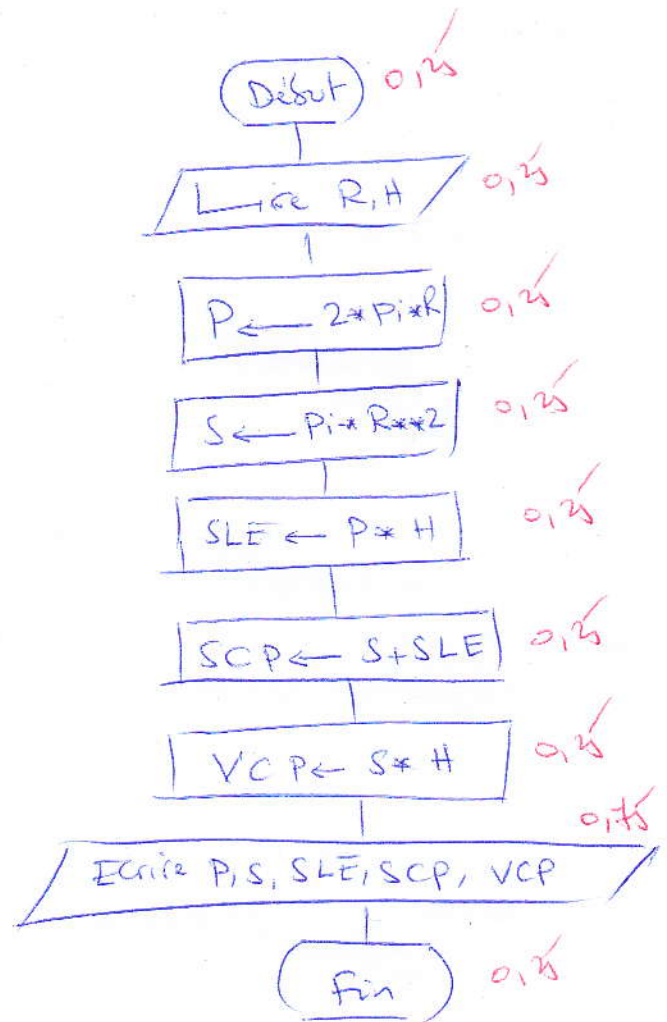 Début 0,25
Lire R, H 0,25
P ← 2*Pi*R 0,25
S ← Pi* R**2 0,25
SLE ← P* H 0,25
SCP ← S+SLE 0,25
VCP ← S* H 0,25
0,75
Ecrire P, S, SLE, SCP, VCP
Fin 0,25